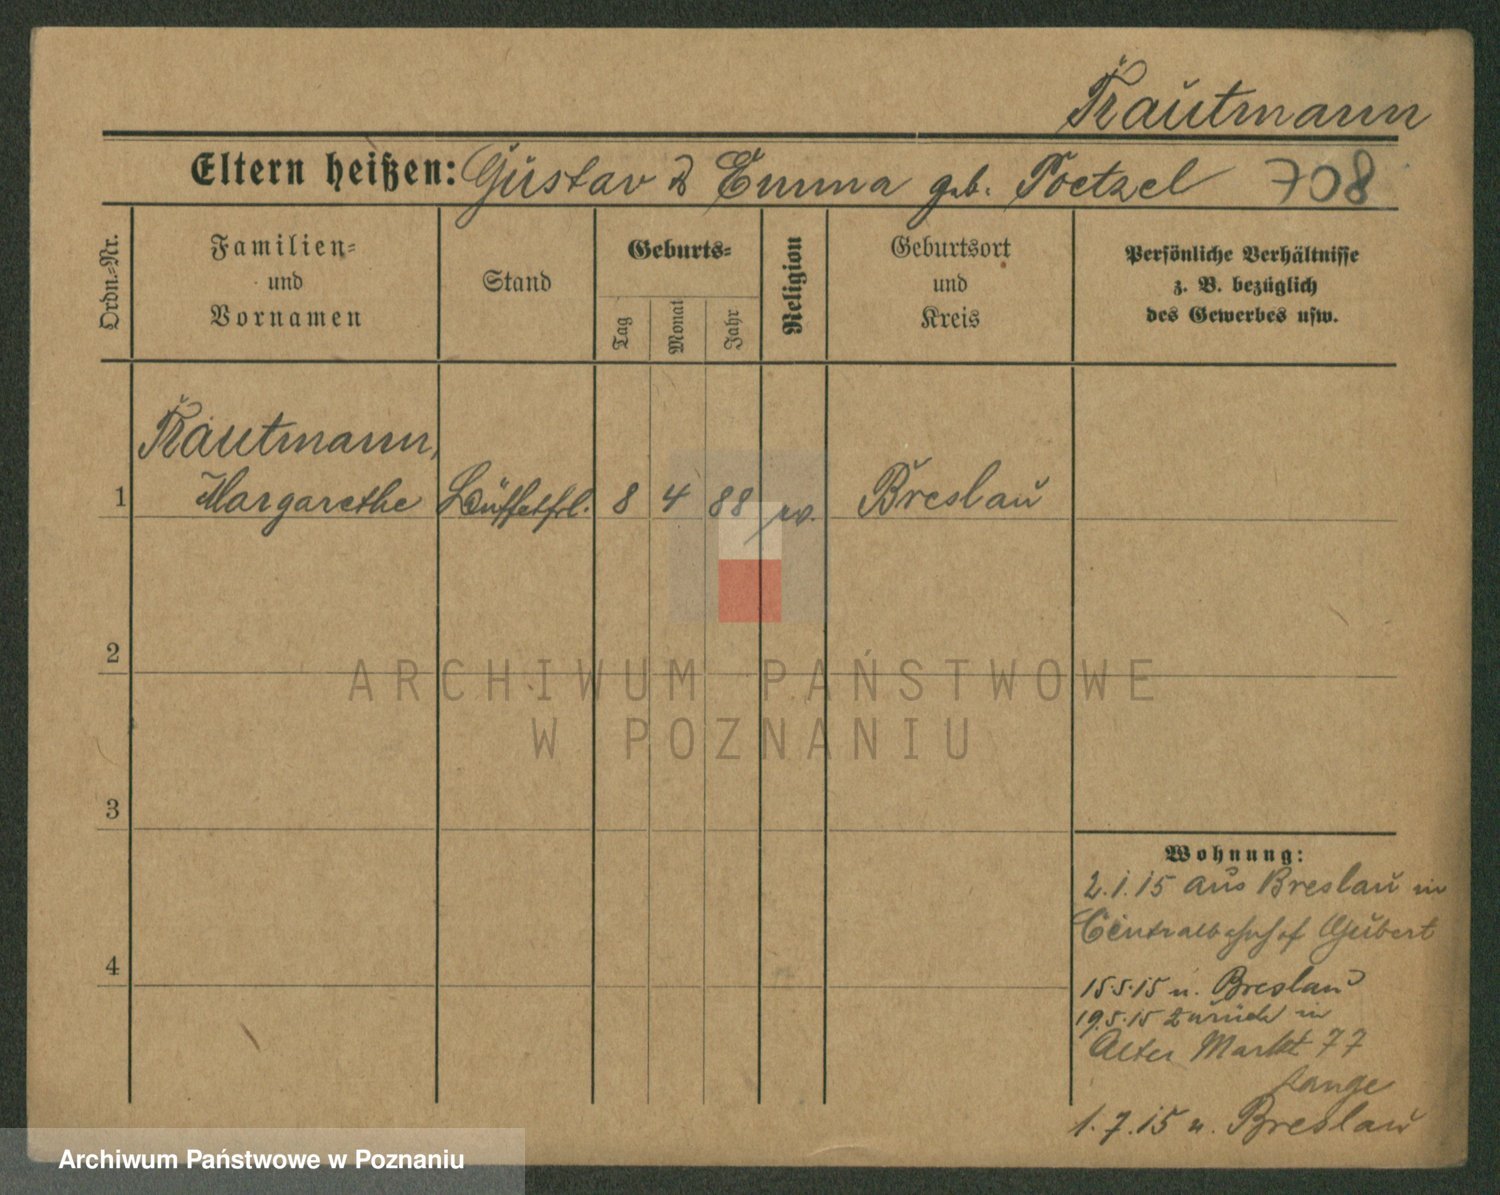 Trautmann
Eltern heißen: Gustav & Emma geb. Poetzel 708
Ordn.-Nr.
Familien-
und
Vornamen
Stand
Geburts-
Tag
Monat
Jahr
Religion
Geburtsort
und
Kreis
Persönliche Verhältnisse
z. B. bezüglich
des Gewerbes usw.
Trautmann,
1 Margarethe Büffetfrl. 8 4 88 ev. Breslau
2
3
4
Wohnung:
2.1.15 aus Breslau in
Centralbahnhof
15.5.15 n. Breslau
19.5.15 zurück in
Alter Markt 77
Lange
1.7.15 n. Breslau
ARCHIWUM PAŃSTWOWE
W POZNANIU
Archiwum Państwowe w Poznaniu